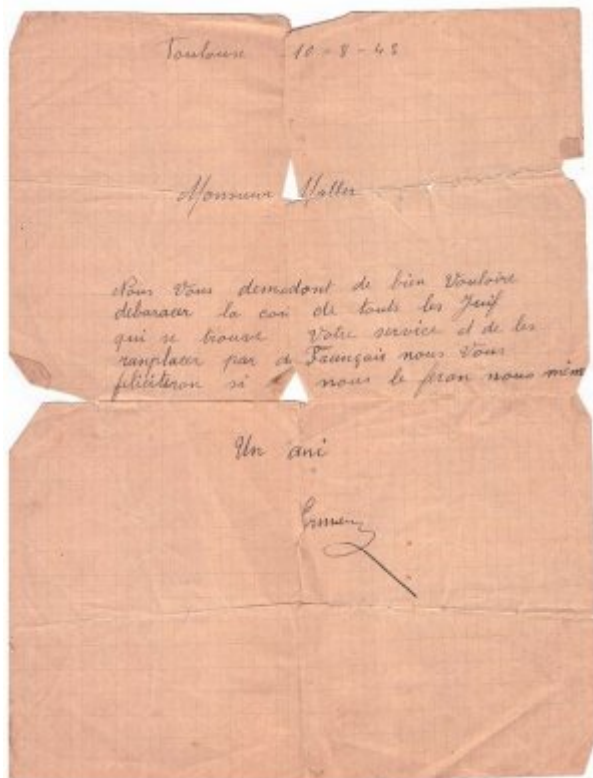 Toulouse 10-8-43
Monsieur Maller
Nous Vous demadont de bien Vouloire
debaracer la coin de touts les Juif
qui se trouve Votre service et de les
ranplacer par de Faunçais nous Vous
feliciteron si nous le feron nous mém
Un ami